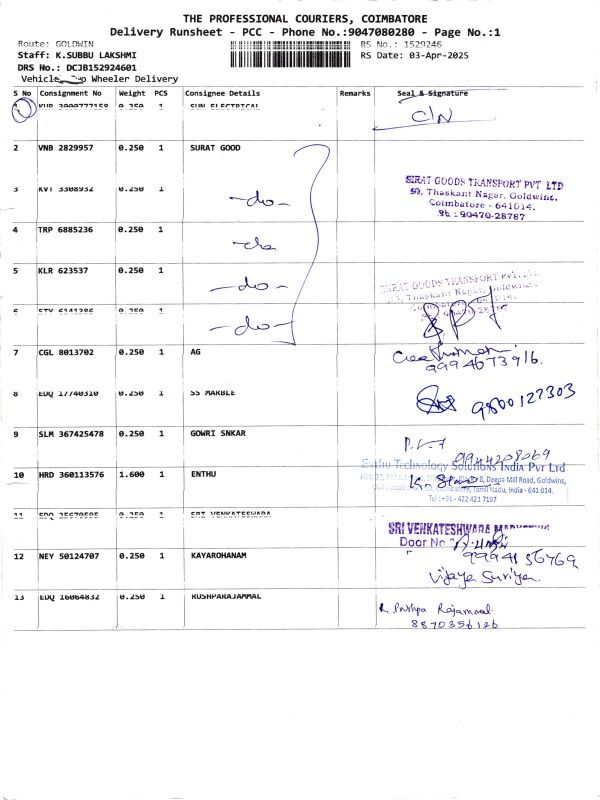 THE PROFESSIONAL COURIERS, COIMBATORE
Delivery Runsheet - PCC - Phone No.:9047080280 - Page No.:1
Route: GOLDWIN
RS No.: 1529246
Staff: K.SUBBU LAKSHMI
RS Date: 03-Apr-2025
DRS No.: DCJB152924601
Vehicle Two Wheeler Delivery
S No Consignment No Weight PCS Consignee Details Remarks Seal & Signature
1 0.250 1 SUN ELECTRICAL
2 VNB 2829957 0.250 1 SURAT GOOD
3 KVT 3308932 0.250 1 -do-
SURAT GOODS TRANSPORT PVT LTD
Thaskant Nagar, Goldwins,
Coimbatore - 641014.
Ph : 90470-28787
4 TRP 6885236 0.250 1 -do-
5 KLR 623537 0.250 1 -do-
SURAT GOODS TRANSPORT PVT. LTD
6 0.250 1 -do-
7 CGL 8013702 0.250 1 AG
9994673916.
8 EDQ 17740310 0.250 1 SS MARBLE
9800127303
9 SLM 367425478 0.250 1 GOWRI SNKAR
9944208069
10 HRD 360113576 1.600 1 ENTHU
Enthu Technology Solutions India Pvt Ltd
Deepa Mill Road, Goldwins,
Coimbatore, Tamil Nadu, India - 641 014.
Tel : +91 - 422 421 7197
11 0.250 1 SRI VENKATESWARA
SRI VENKATESHWARA MARKETING
Door No.
12 NEY 50124707 0.250 1 KAYAROHANAM
9994136769
Vijaya Suriya.
13 EDQ 16064832 0.250 1 RUSHPARAJAMMAL
R. Pushpa Rajammal
8870356126